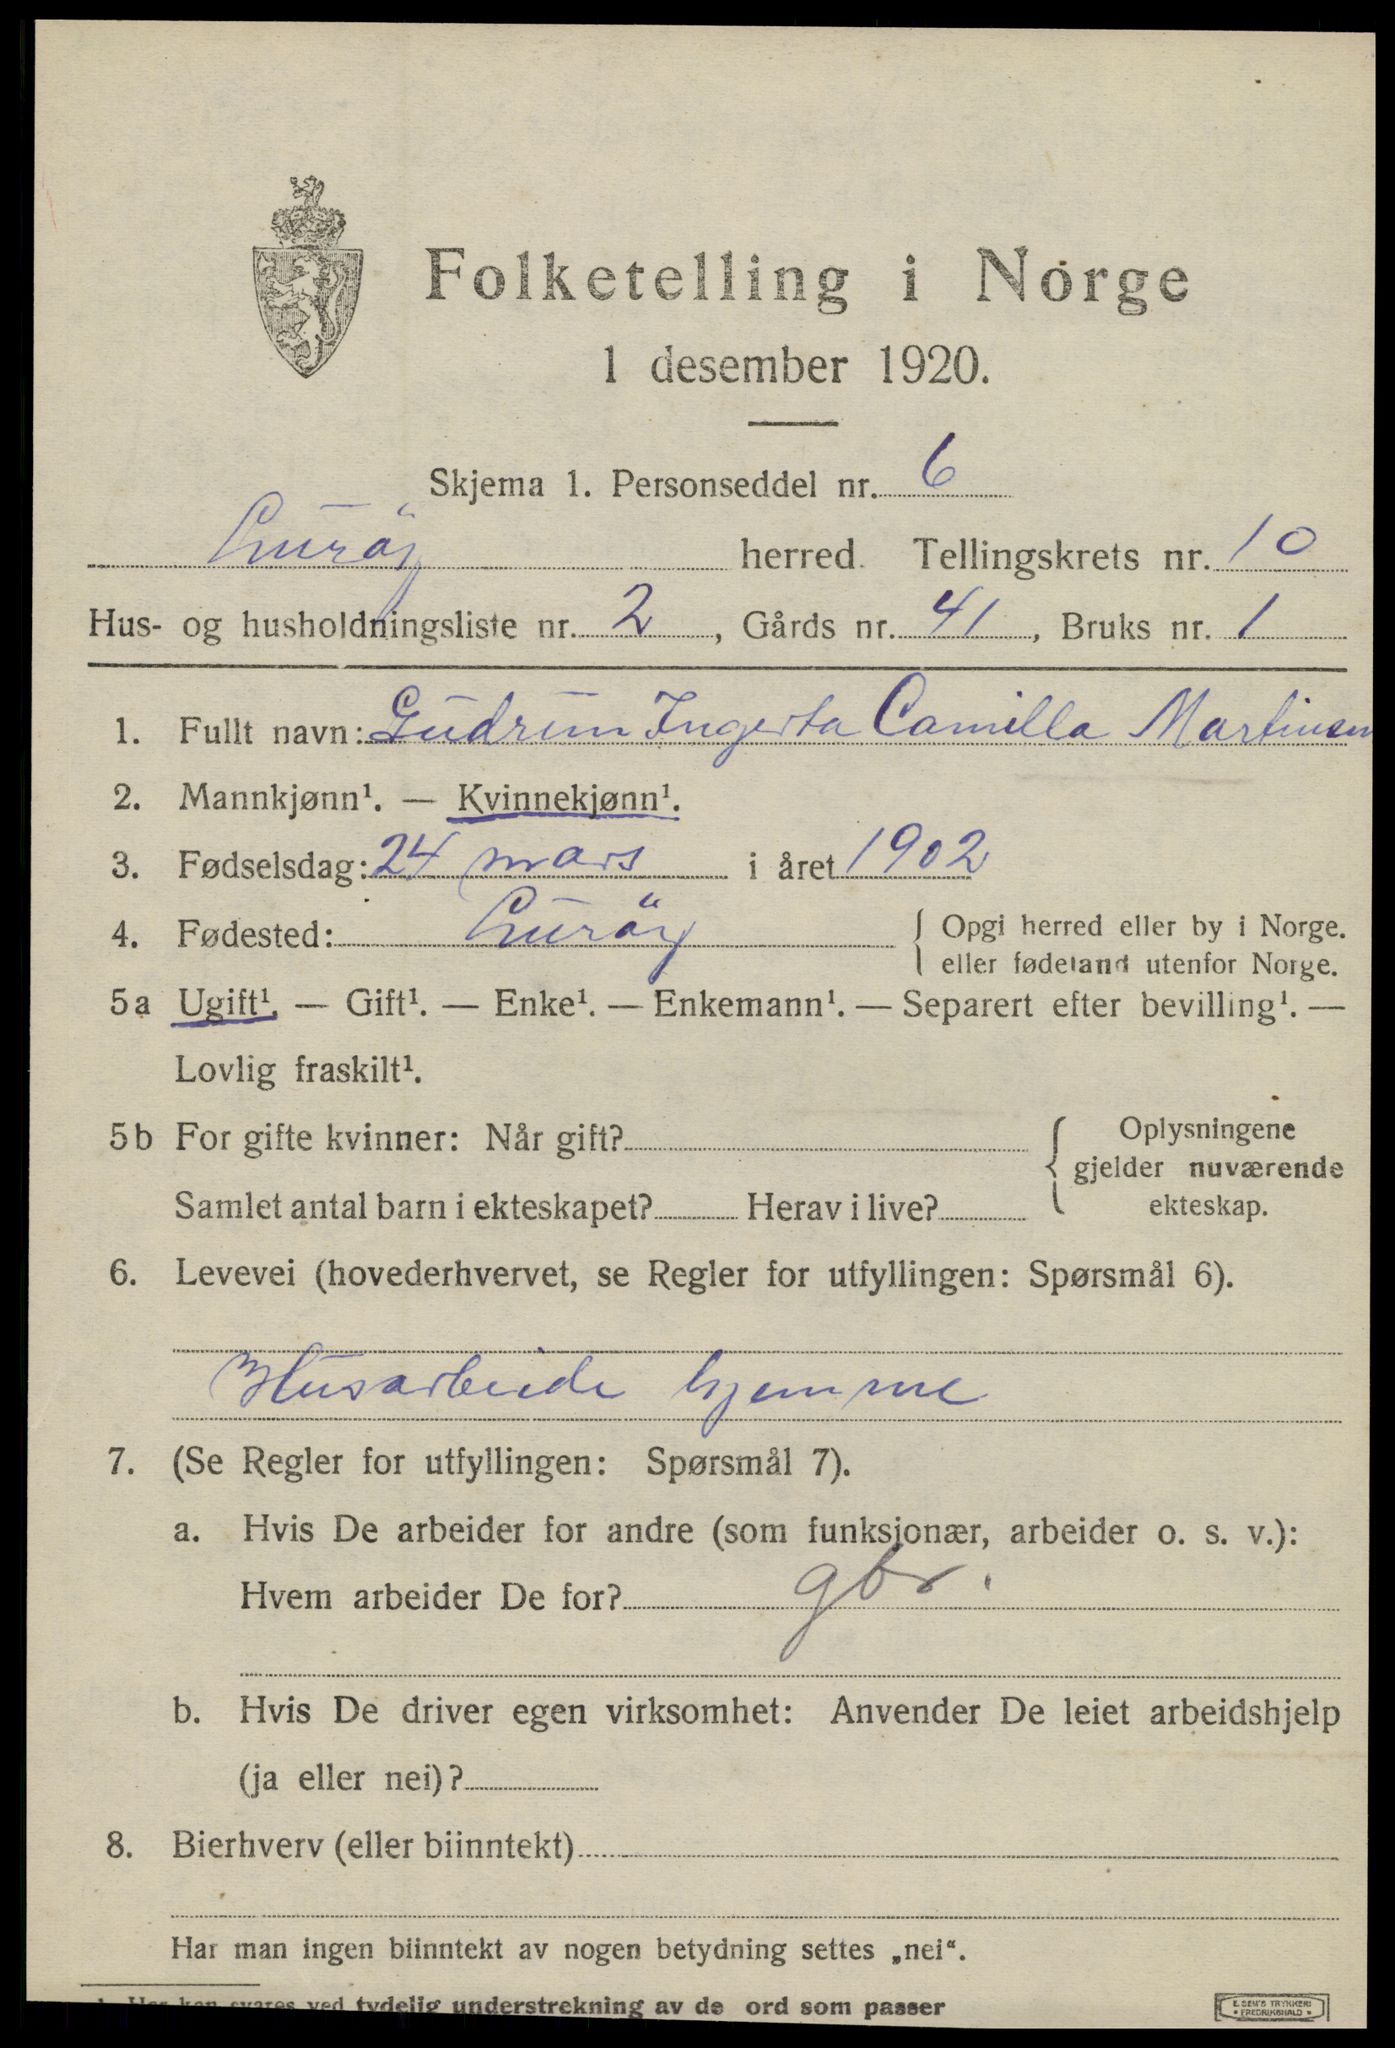 Folketelling i Norge
1 desember 1920.
Skjema 1. Personseddel nr. 6
Luröy herred. Tellingskrets nr. 10
Hus- og husholdningsliste nr. 2, Gårds nr. 41, Bruks nr. 1
1. Fullt navn: Gudrun Ingerta Camilla Martinsen
2. Mannkjønn¹. — Kvinnekjønn¹.
3. Fødselsdag: 24 mars i året 1902
4. Fødested: Luröy { Opgi herred eller by i Norge.
eller fødeland utenfor Norge.
5a Ugift¹. — Gift¹. — Enke¹. — Enkemann¹. — Separert efter bevilling¹. —
Lovlig fraskilt¹.
5b For gifte kvinner: Når gift? { Oplysningene
gjelder nuværende
Samlet antal barn i ekteskapet? Herav i live? ekteskap.
6. Levevei (hovederhvervet, se Regler for utfyllingen: Spørsmål 6).
Husarbeide hjemme
7. (Se Regler for utfyllingen: Spørsmål 7).
a. Hvis De arbeider for andre (som funksjonær, arbeider o. s. v.):
Hvem arbeider De for? gbr.
b. Hvis De driver egen virksomhet: Anvender De leiet arbeidshjelp
(ja eller nei)?
8. Bierhverv (eller biinntekt)
Har man ingen biinntekt av nogen betydning settes „nei“.
1 Her kan svares ved tydelig understrekning av de ord som passer
E. SEM'S TRYKKERI
• FREDRIKSHALD •